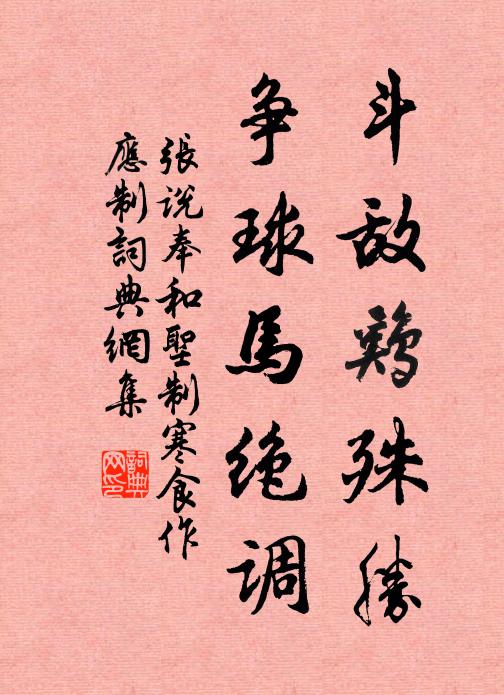 斗敌鷄殊勝
争球馬绝调
張说奉和聖制寒食作
應制詞典網集
詞典网印